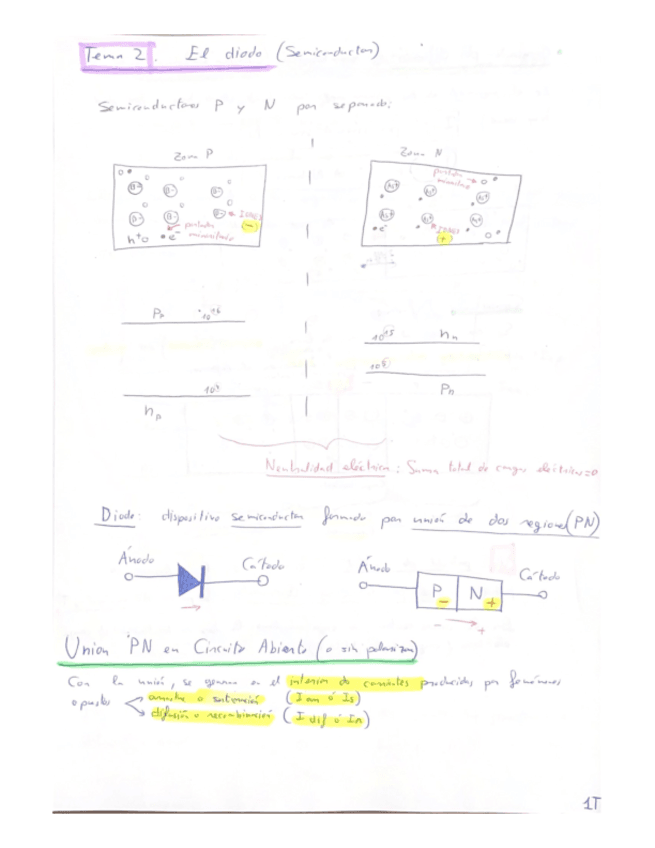 Tema 2. El diodo (Semiconductor)
Semiconductores P y N por separado:
Zona P
Zona N
portador minoritario
B-
B-
B-
B-
B-
B-
IONES
(-)
h+
e-
portador minoritario
As+
As+
As+
As+
As+
As+
IONES
(+)
e-
10^16
10^15
nn
10^4
np
Pn
Neutralidad eléctrica: Suma total de cargas eléctricas=0
Diodo: dispositivo semiconductor formado por unión de dos regiones (PN)
Ánodo
Cátodo
Ánodo
Cátodo
P
-
N
+
- → +
Union PN en Circuito Abierto (o sin polarizar)
Con la unión, se generan en el interior dos corrientes producidas por fenómenos
opuestos
arrastre o saturación (I arr ó Is)
difusión o recombinación (I dif ó Ir)
1T